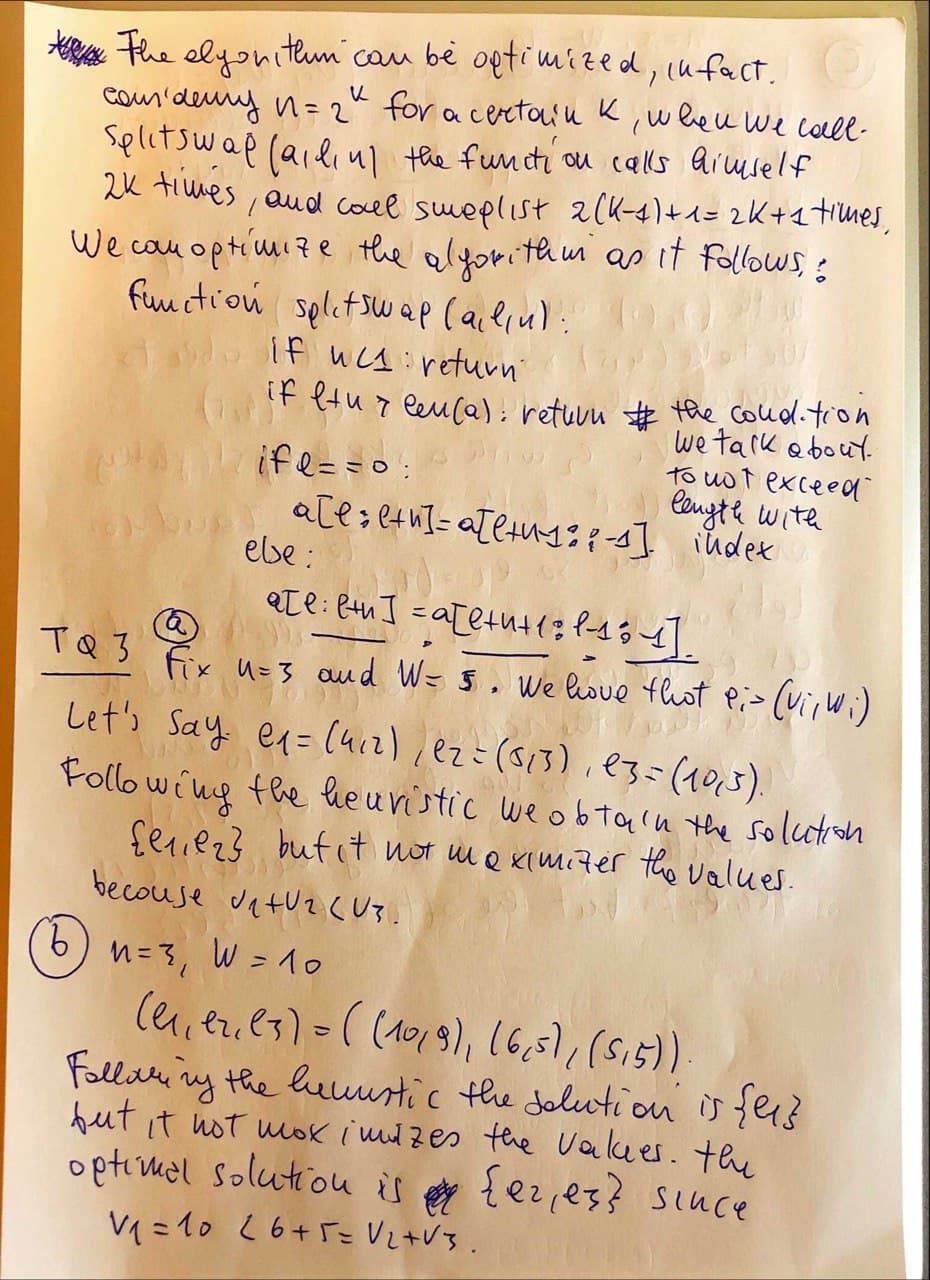 The algorithm can be optimized, in fact.
considering n = 2^k for a certain k, when we call
splitswap (a,l,n) the function calls himself
2k times, and call swaplist 2(k-1)+1 = 2k+1 times.
We can optimize the algorithm as it follows:
function splitswap (a,l,n):
if n<1: return
if l+n > len(a): return # the condition
we talk about
to not exceed
length with
index
if l == 0:
a[l:l+n] = a[l+n-1::-1].
else:
a[l:l+n] = a[l+n+1:l-1:-1].
TQ3 (a)
Fix n=3 and W= 5. We have that ei = (vi, wi)
Let's say e1 = (4,2), e2 = (5,3), e3 = (10,5).
Following the heuristic we obtain the solution
{e1,e2} but it not maximizes the values.
becouse v1+v2 < v3.
(b) n=3, W = 10
(e1,e2,e3) = ((10,9), (6,5), (5,5)).
Following the heuristic the solution is {e1}
but it not maximizes the values. the
optimal solution is {e2,e3} since
v1 = 10 < 6+5 = v2+v3.